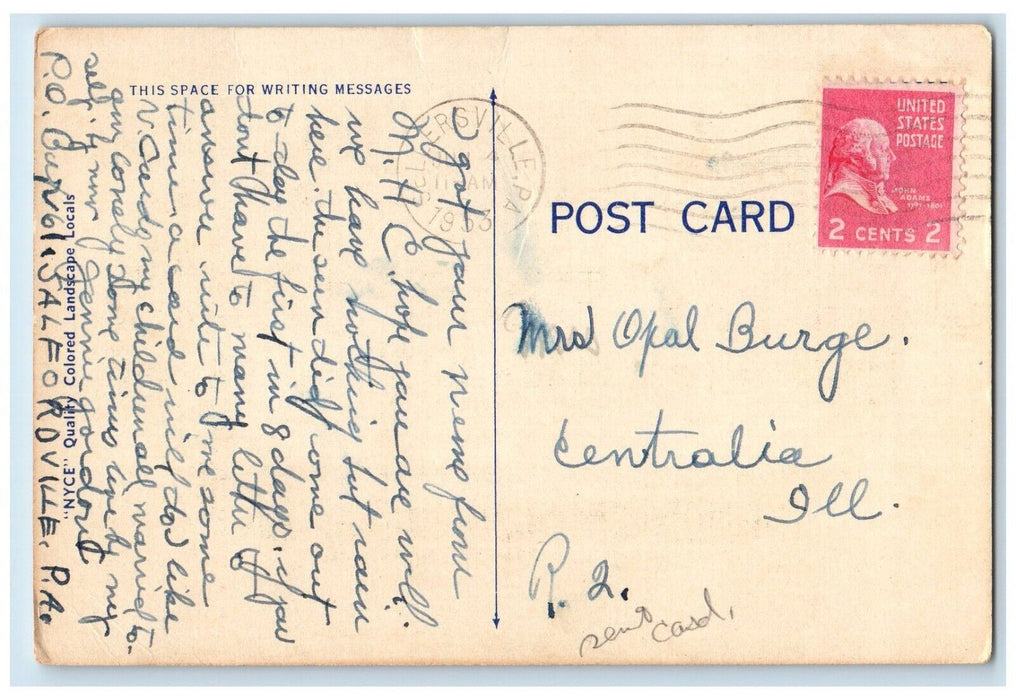 THIS SPACE FOR WRITING MESSAGES
I got your name from
M. H C. hope you are well.
we have nothing but rain
here. the sun did come out
to day the first in 8 days. if you
dont have to many letters to
answer write to me some
time a card will do I like
V. Cards my children all married to.
am lonely Some times live by my
self. my name Jennie Gordon
P.O. Box 61. SALFORDVILLE. P.A.
"NYCE" Quality Colored Landscape Locals
ERSVILLE, PA
11 AM
1953
POST CARD
UNITED
STATES
POSTAGE
JOHN
ADAMS
1797-1801
2 CENTS 2
Mrs Opal Burge.
Centralia
Ill.
R. 2.
sent
Card.